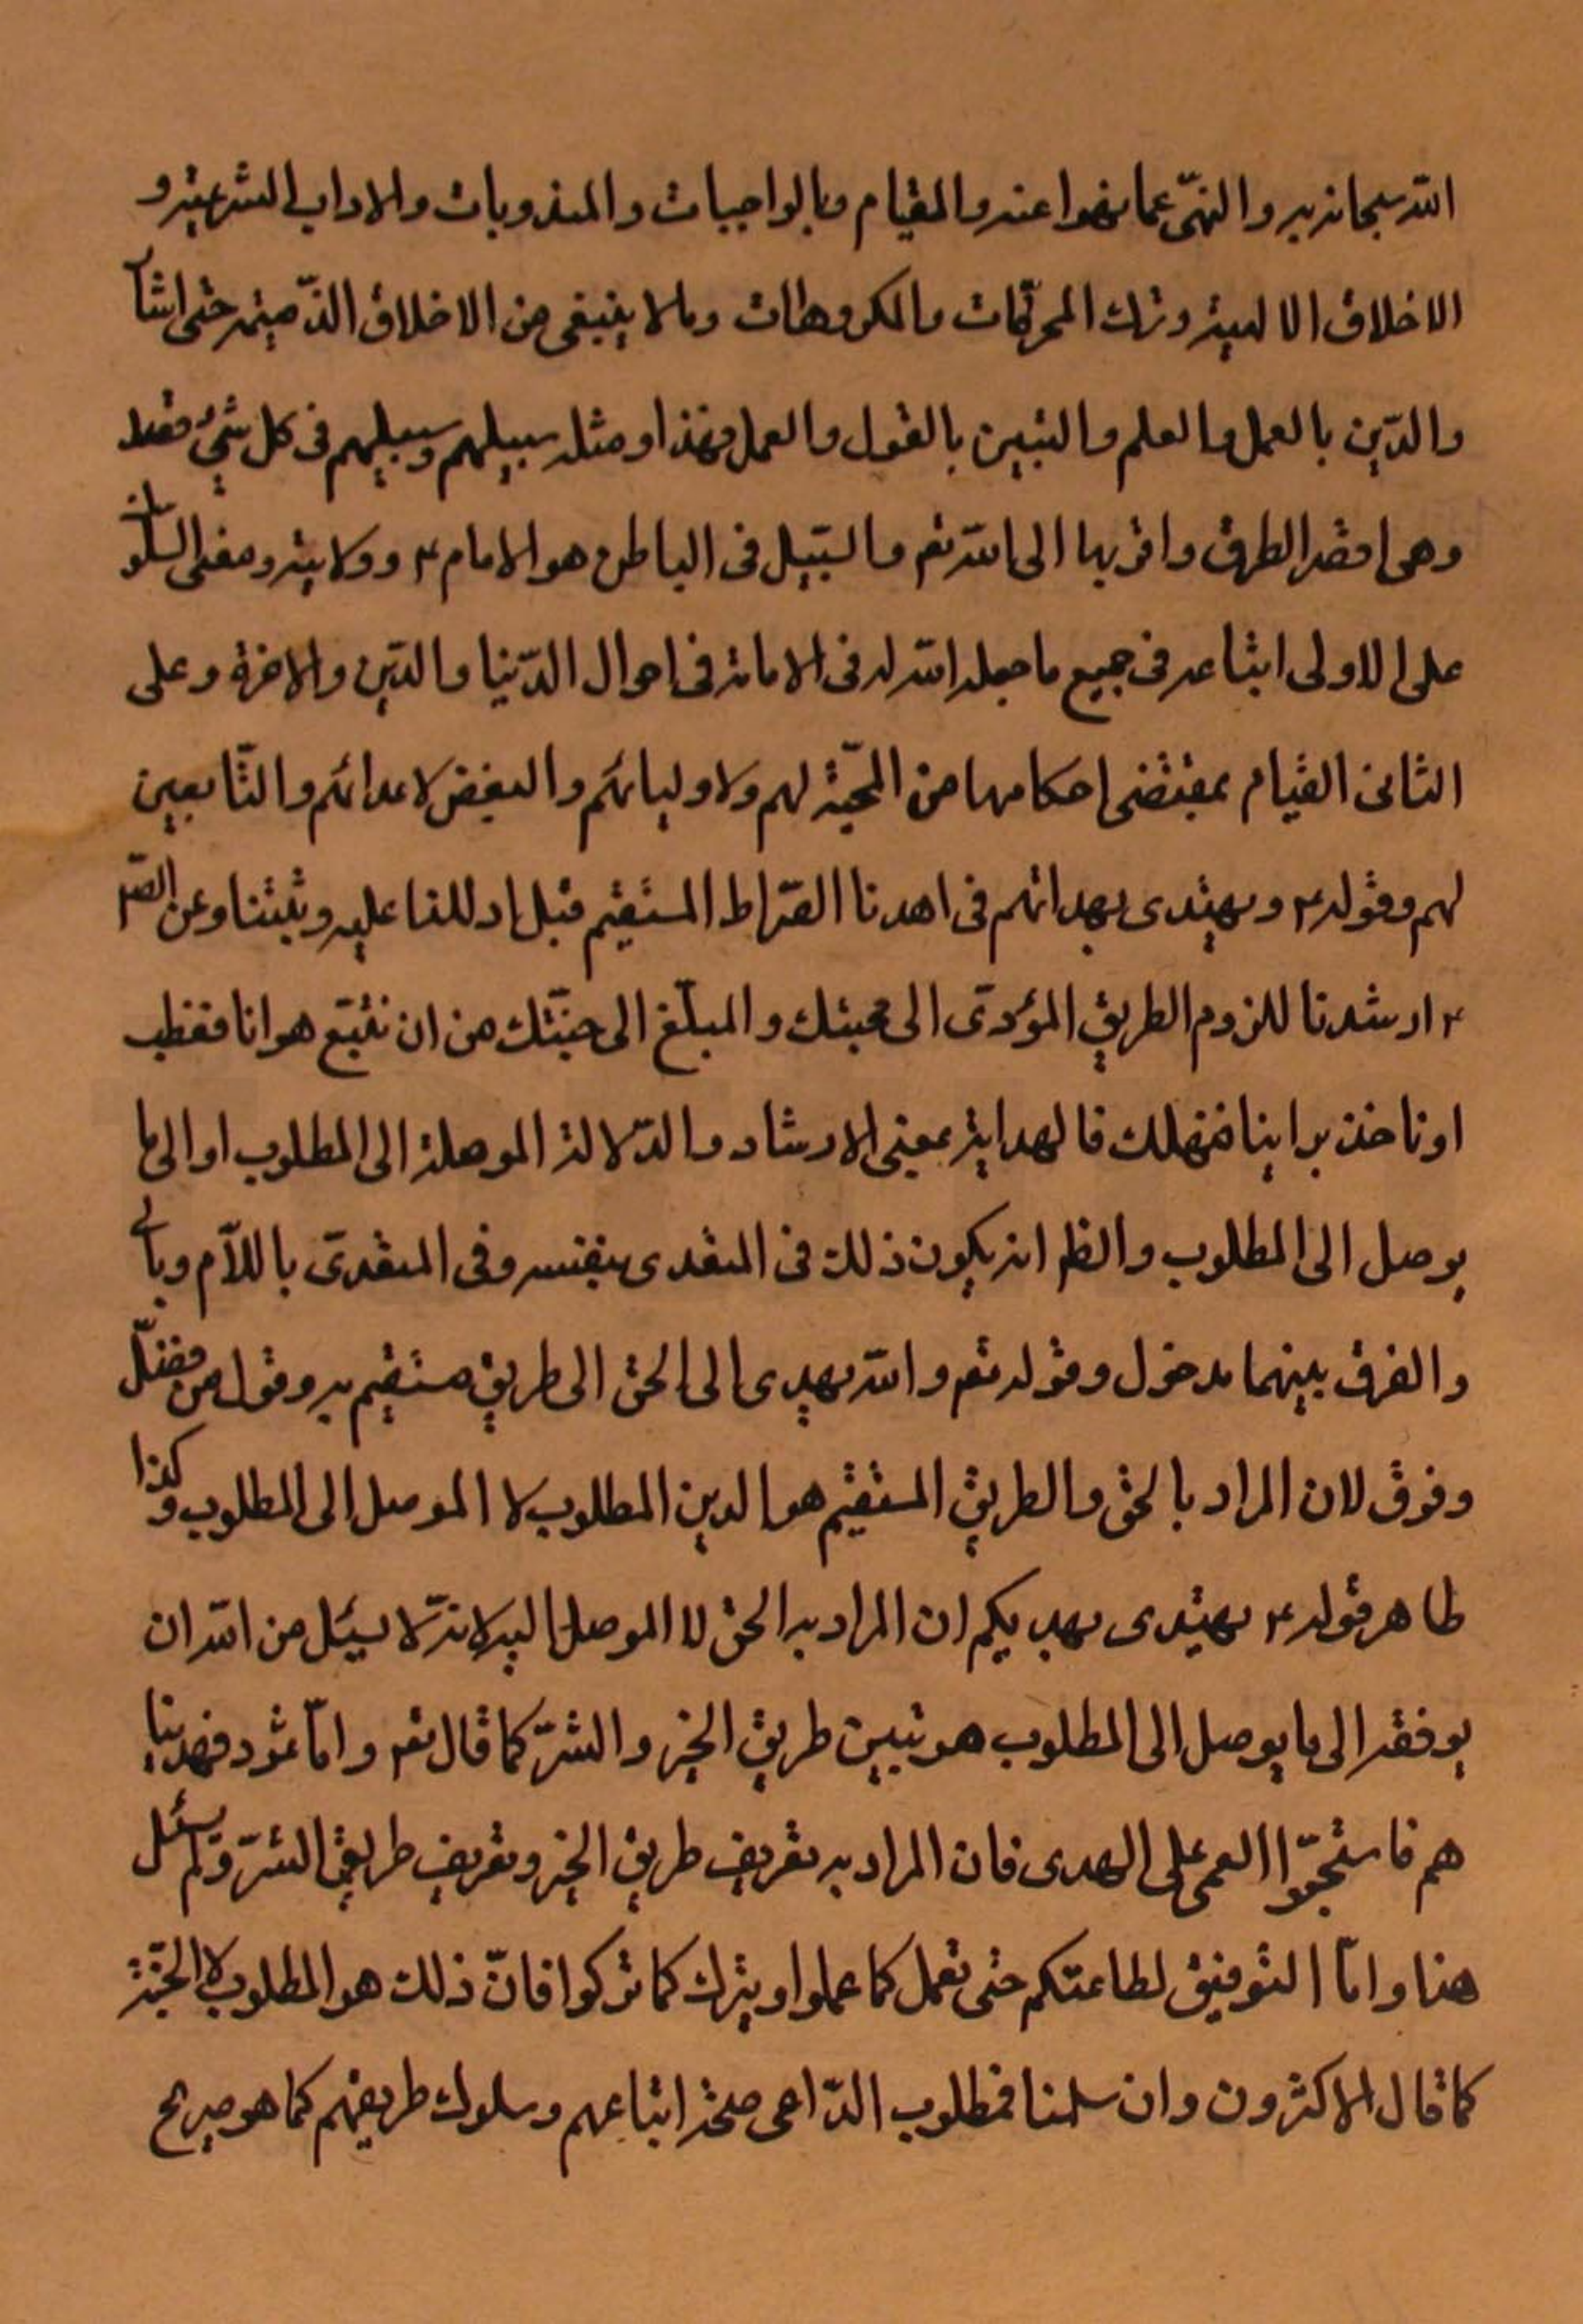 الله سبحانه به والنهی عما نهوا عنه والقیام بالواجبات والمندوبات والاداب الشرعیة و
الاخلاق الالهیة وترك المحرّمات والمکروهات وما لا ینبغی من الاخلاق الذّمیمة حتی انشأ
والدّین بالعمل والعلم والتبیین بالقول والعمل فهذا ومثله سبیلهم وسبیلهم فی کل شیء قصد
وهی اقصد الطرق واقربها الی الله تعم والسّبیل فی الباطن هو الامام ۴ وولایته ومعنی السلوك
علی الاولی اتباعه فی جمیع ما جعله الله له فی الامامة فی احوال الدّنیا والدّین والاخرة وعلی
الثانی القیام بمقتضی احکامها من المحبّة لهم ولاولیائهم والبغض لاعدائهم والتّابعین
لهم وقوله ۴ ویهتدی بهداهم فی اهدنا الصّراط المستقیم قبل ادللنا علیه وثبتنا وعن الصّم
۴ ارشدنا للزوم الطریق المؤدّی الی محبتك والمبلّغ الی جنّتك من ان نتّبع هوانا فنعطب
او ناخذ برأینا فنهلك فالهدایة بمعنی الارشاد والدّلالة الموصلة الی المطلوب او الی ما
یوصل الی المطلوب والظم انه یکون ذلك فی المتعدی بنفسه وفی المتعدّی باللّام وبالی
والفرق بینهما مدخول وقوله تعم والله یهدی الی الحق الی طریق مستقیم به وقوله من فضّل
وفرق لان المراد بالحق والطریق المستقیم هو الدین المطلوب لا الموصل الی المطلوب وکذا
ظاهر قوله ۴ یهتدی بهدیکم ان المراد به الحق لا الموصل الیه لانّه لا یسئل من الله ان
یوفقه الی ما یوصل الی المطلوب هو تبیین طریق الخیر والشرّ کما قال تعم وامّا ثمود فهدینا
هم فاستحبّوا العمی علی الهدی فان المراد به تعریف طریق الخیر وتعریف طریق الشرّ ولم یسئل
هذا وامّا التوفیق لطاعتکم حتی نعمل کما عملوا ویترك کما ترکوا فانّ ذلك هو المطلوب لا الجنّة
کما قال الاکثرون وان سلمنا فمطلوب الدّاعی صحة اتباعهم وسلوك طریقهم کما هو صریح